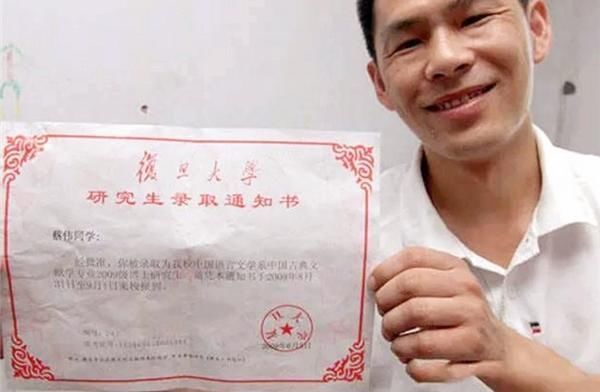 復旦大學
研究生录取通知书
蔡伟同学:
经批准,你被录取为我校中国语言文学系中国古典文
献学专业2009级博士研究生,请凭本通知书于2009年8月
31日至9月1日来校报到。
编号:
2009年6月